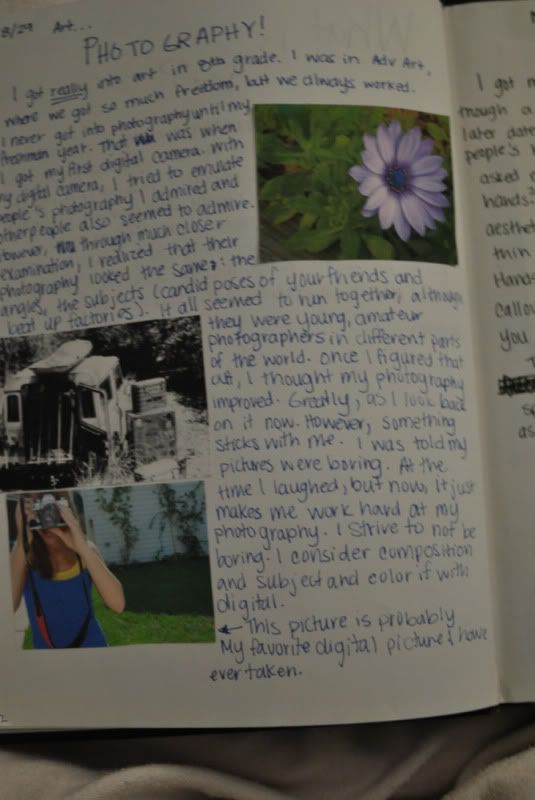 8/29 Art...
PHOTOGRAPHY!
I got really into art in 8th grade. I was in Adv Art,
where we got so much freedom, but we always worked.
I never got into photography until my
freshman year. That was when
I got my first digital camera. With
my digital camera, I tried to emulate
people's photography I admired and
other people also seemed to admire.
However, through much closer
examination, I realized that their
photography looked the same: the
angles, the subjects (candid poses of your friends and
beat up factories). It all seemed to run together, although
they were young, amateur
photographers in different parts
of the world. Once I figured that
out, I thought my photography
improved. Greatly, as I look back
on it now. However, something
sticks with me. I was told my
pictures were boring. At the
time I laughed, but now, it just
makes me work hard at my
photography. I strive to not be
boring. I consider composition
and subject and color if with
digital.
← This picture is probably
My favorite digital picture I have
ever taken.
2
I got
though a
later date
people's
asked
hands?
aesthet
thin
Hands
callou
you
as